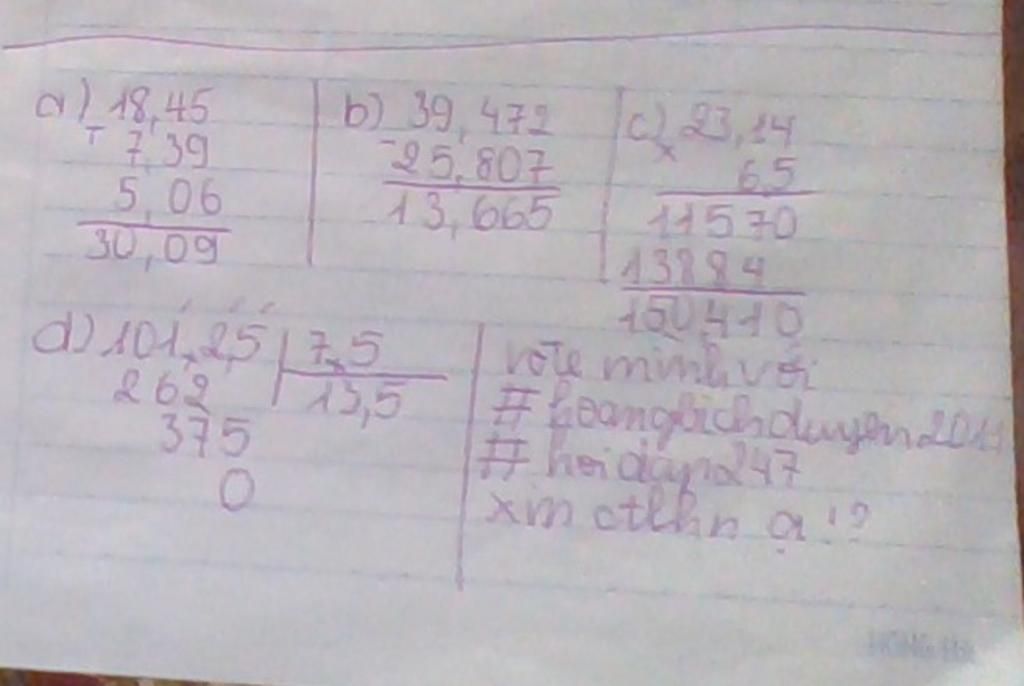 a) 18,45
+ 7,39
5,06
30,09
b) 39,472
- 25,807
13,665
c) 23,14
x 65
11570
13884
150,410
d) 101,25 | 7,5
262 13,5
375
0
vote mình với
# hoangbichduyen2011
# hoidap247
xin ctlhn ạ!?
HONG HA